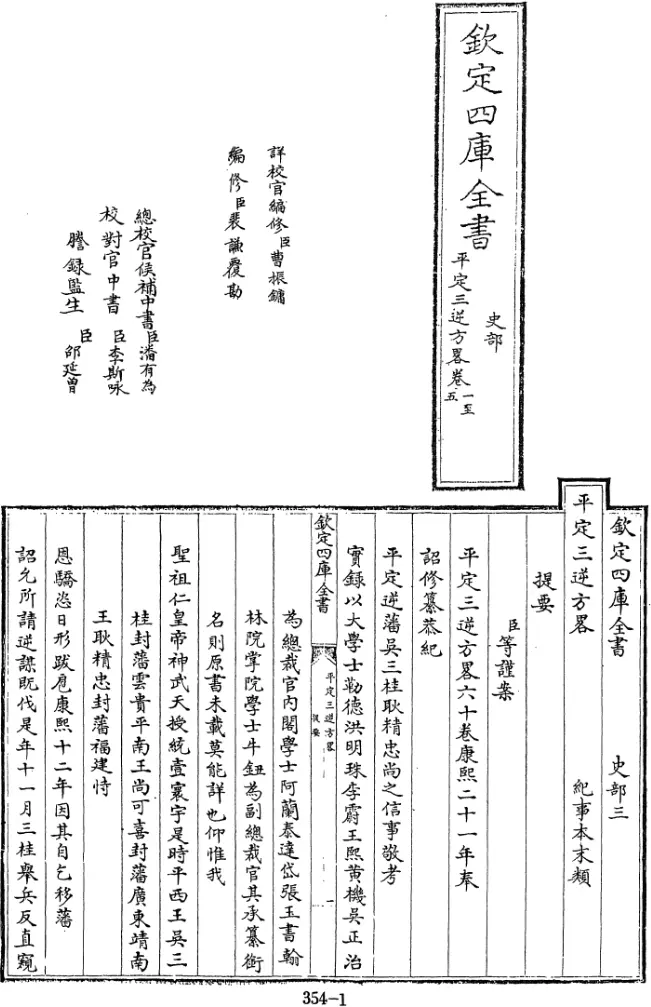 欽定四庫全書
史部
平定三逆方畧卷一至五
詳校官編修臣曹振鏞
編修臣裴謙覆勘
總校官候補中書臣潘有為
校對官中書臣李斯咏
謄録監生臣邵延曾
欽定四庫全書 史部三
平定三逆方畧 紀事本末類
提要
臣等謹案
平定三逆方畧六十卷康熙二十一年奉
詔修纂恭紀
平定逆藩吳三桂耿精忠尚之信事敬考
實録以大學士勒德洪明珠李霨王熙黄機吳正治
欽定四庫全書
平定三逆方畧
提要
一
為總裁官內閣學士阿蘭泰達岱張玉書翰
林院掌院學士牛鈕為副總裁官其承纂銜
名則原書未載莫能詳也仰惟我
聖祖仁皇帝神武天授統壹寰宇是時平西王吳三
桂封藩雲貴平南王尚可喜封藩廣東靖南
王耿精忠封藩福建恃
恩驕恣日形跋扈康熙十二年因其自乞移藩
詔允所請逆謀既伐是年十一月三桂舉兵反直窺
354-1